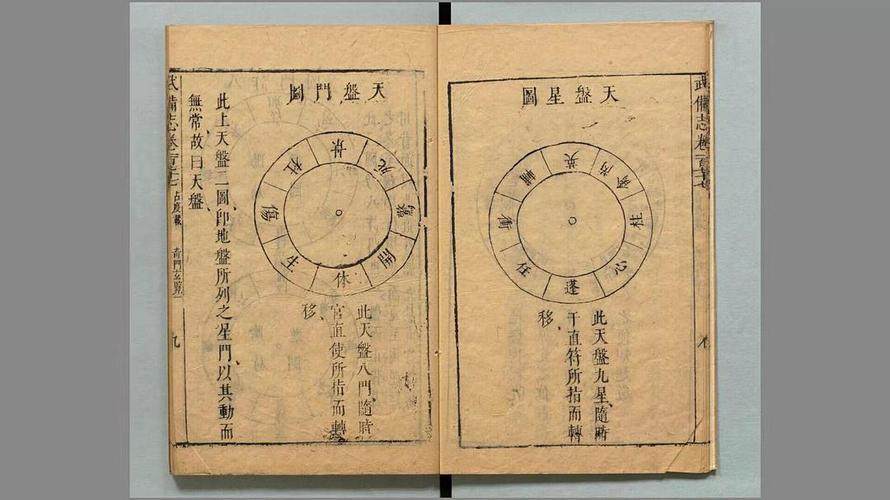 武備志卷
天盤星圖
蓬
任
衝
輔
英
芮
柱
心
此天盤九星隨時
干直符所指而轉
移
天盤門圖
休
生
傷
杜
景
死
驚
開
此天盤八門隨時
宮直使所指而轉
移
此上天盤二圖即地盤所列之星門以其動而
無常故曰天盤
武備志卷
占度載
奇門玄覽一
九